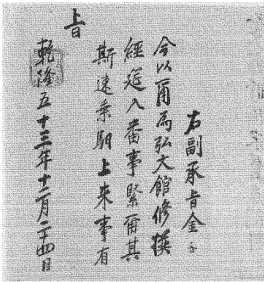 右副承旨金
今以爾爲弘文館修撰
經筵入番事緊爾其
斯速乘馹上來事有
旨
乾隆五十三年十二月二十四日